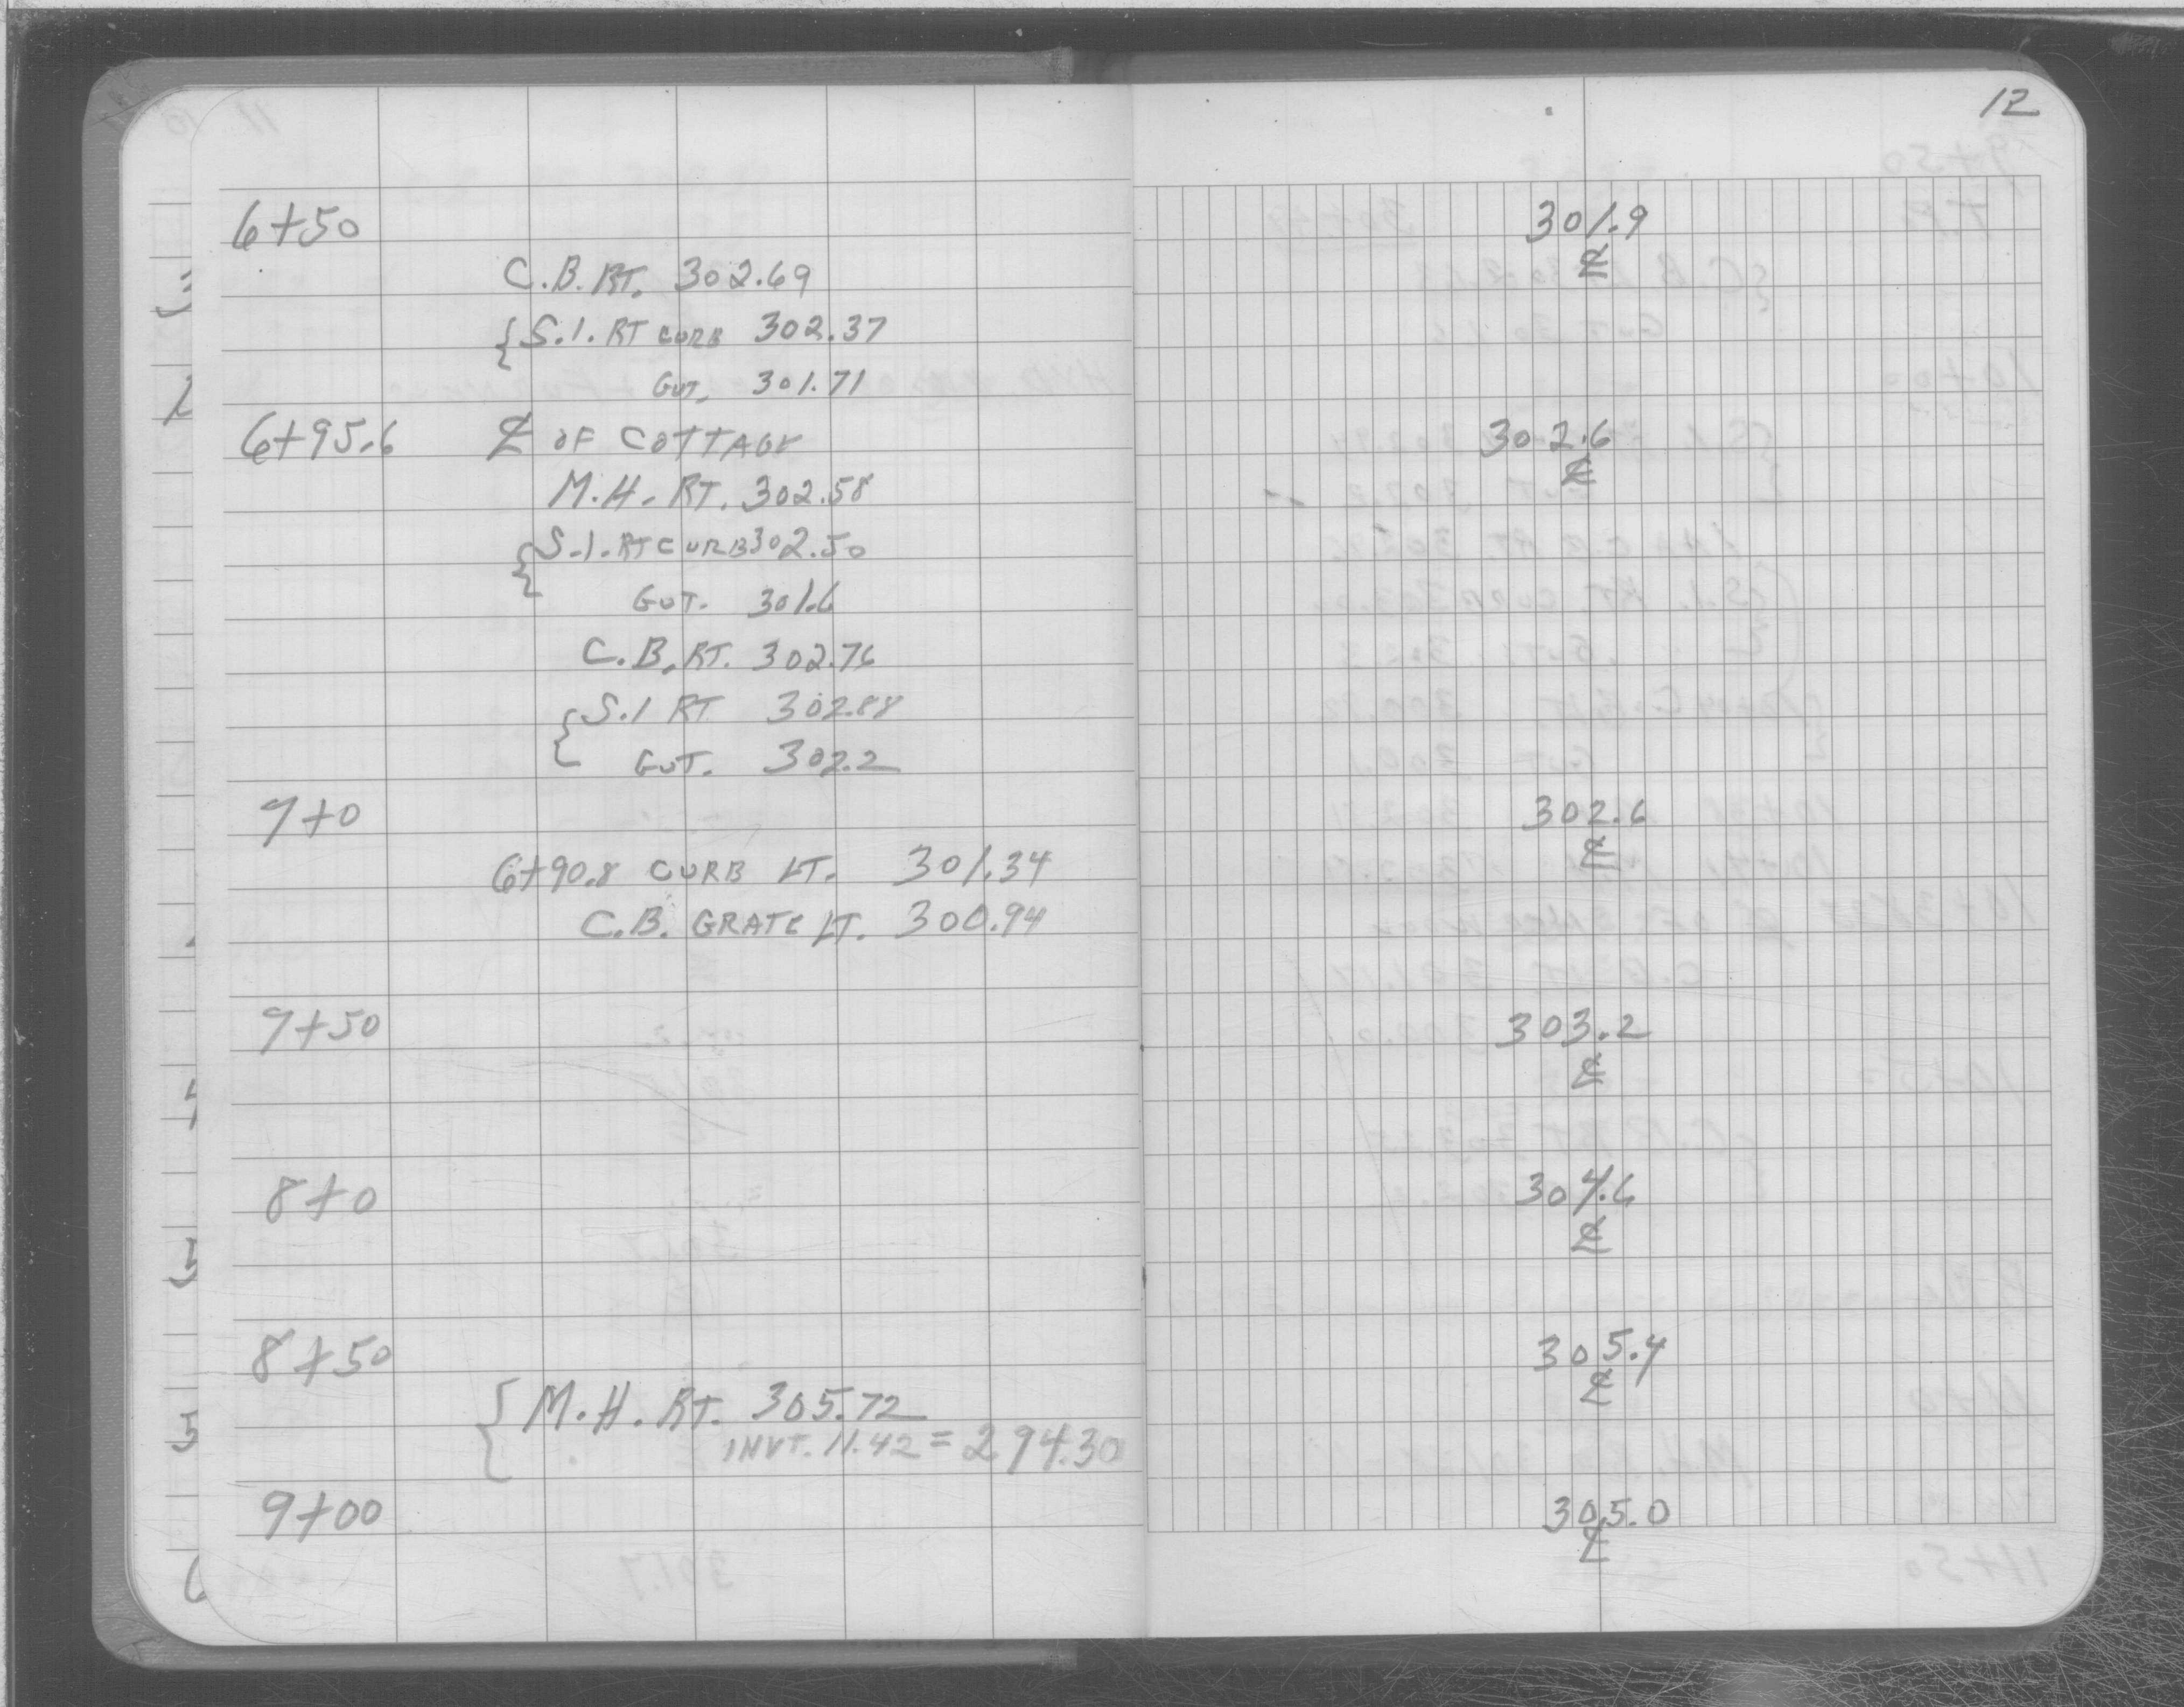 12
6+50 301.9
℄
C.B. RT. 302.69
{S.I. RT CURB 302.37
GUT. 301.71
6+95.6 ℄ OF COTTAGE 302.6
℄
M.H. RT. 302.58
{S.I. RT CURB 302.50
GUT. 301.6
C.B. RT. 302.76
{S.I RT 302.88
GUT. 302.2
7+0 302.6
℄
6+90.8 CURB LT. 301.34
C.B. GRATE LT. 300.94
7+50 303.2
℄
8+0 304.6
℄
8+50 305.4
℄
{M.H. RT. 305.72
INVT. 11.42 = 294.30
9+00 305.0
℄